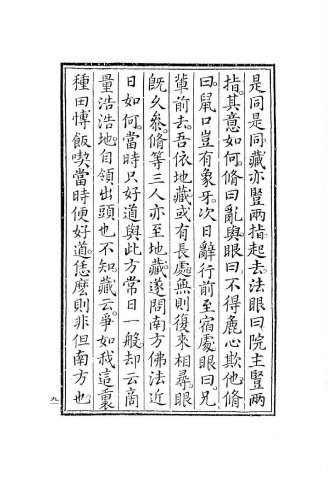 是同是同藏亦豎兩指起去法眼曰院主豎兩
指其意如何脩曰亂與眼曰不得麁心欺他脩
曰鼠口豈有象牙次日辭行前至宿處眼曰兄
輩前去吾依地藏或有長處無則復來相尋眼
旣久叅脩等三人亦至地藏遂問南方佛法近
日如何當時只好道與此方常日一般却云商
量浩浩地自領出頭也不知藏云爭如我這裏
種田愽飯喫當時便好道恁麼則非但南方也
九